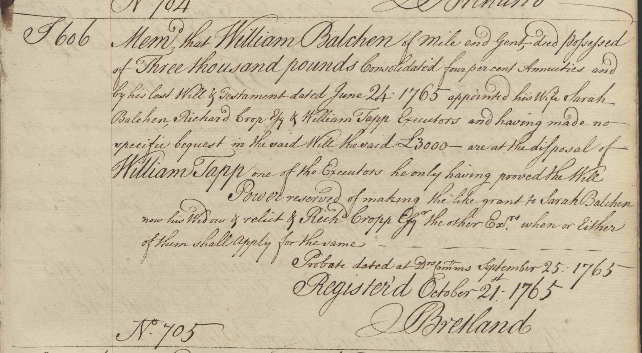 No 704
J Bretland
J 606
Memd. that William Balchen of Mile end Gent. died possessed
of Three thousand pounds Consolidated four per cent Annuities and
by his last Will & Testament dated June 24: 1765 appointed his Wife Sarah
Balchen, Richard Crop Esqr & William Tapp Executors and having made no
specific bequest in the said Will the said £3000 – are at the disposal of
William Tapp one of the Executors he only having proved the Will
Power reserved of making the like grant to Sarah Balchen
now his Widow & relict & Richd Cropp Esqr the other Exrs when or Either
of them shall Apply for the same
Probate dated at Drs Comms September 25: 1765
Register'd October 21st: 1765
No. 705
J Bretland